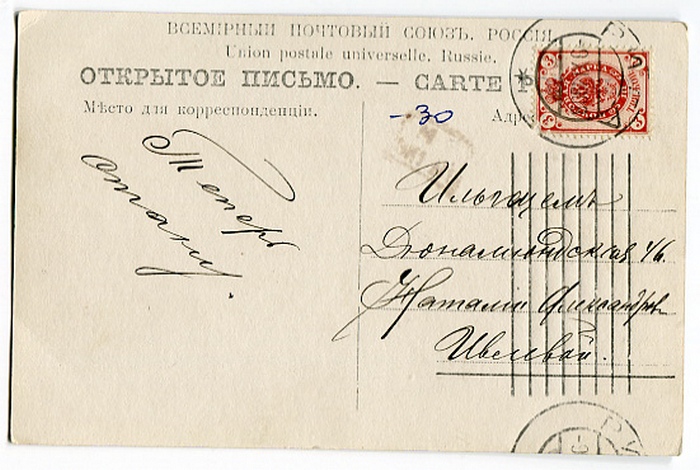 ВСЕМІРНЫЙ ПОЧТОВЫЙ СОЮЗЪ. РОССІЯ.
Union postale universelle. Russie.
ОТКРЫТОЕ ПИСЬМО. — CARTE P
Мѣсто для корреспонденціи.
Адре
-30
3
3
3
Теперь
отвѣчу.
Ильгецемъ
Дюнамюндская 4/6.
Наталіи Александров
Ивелевой.